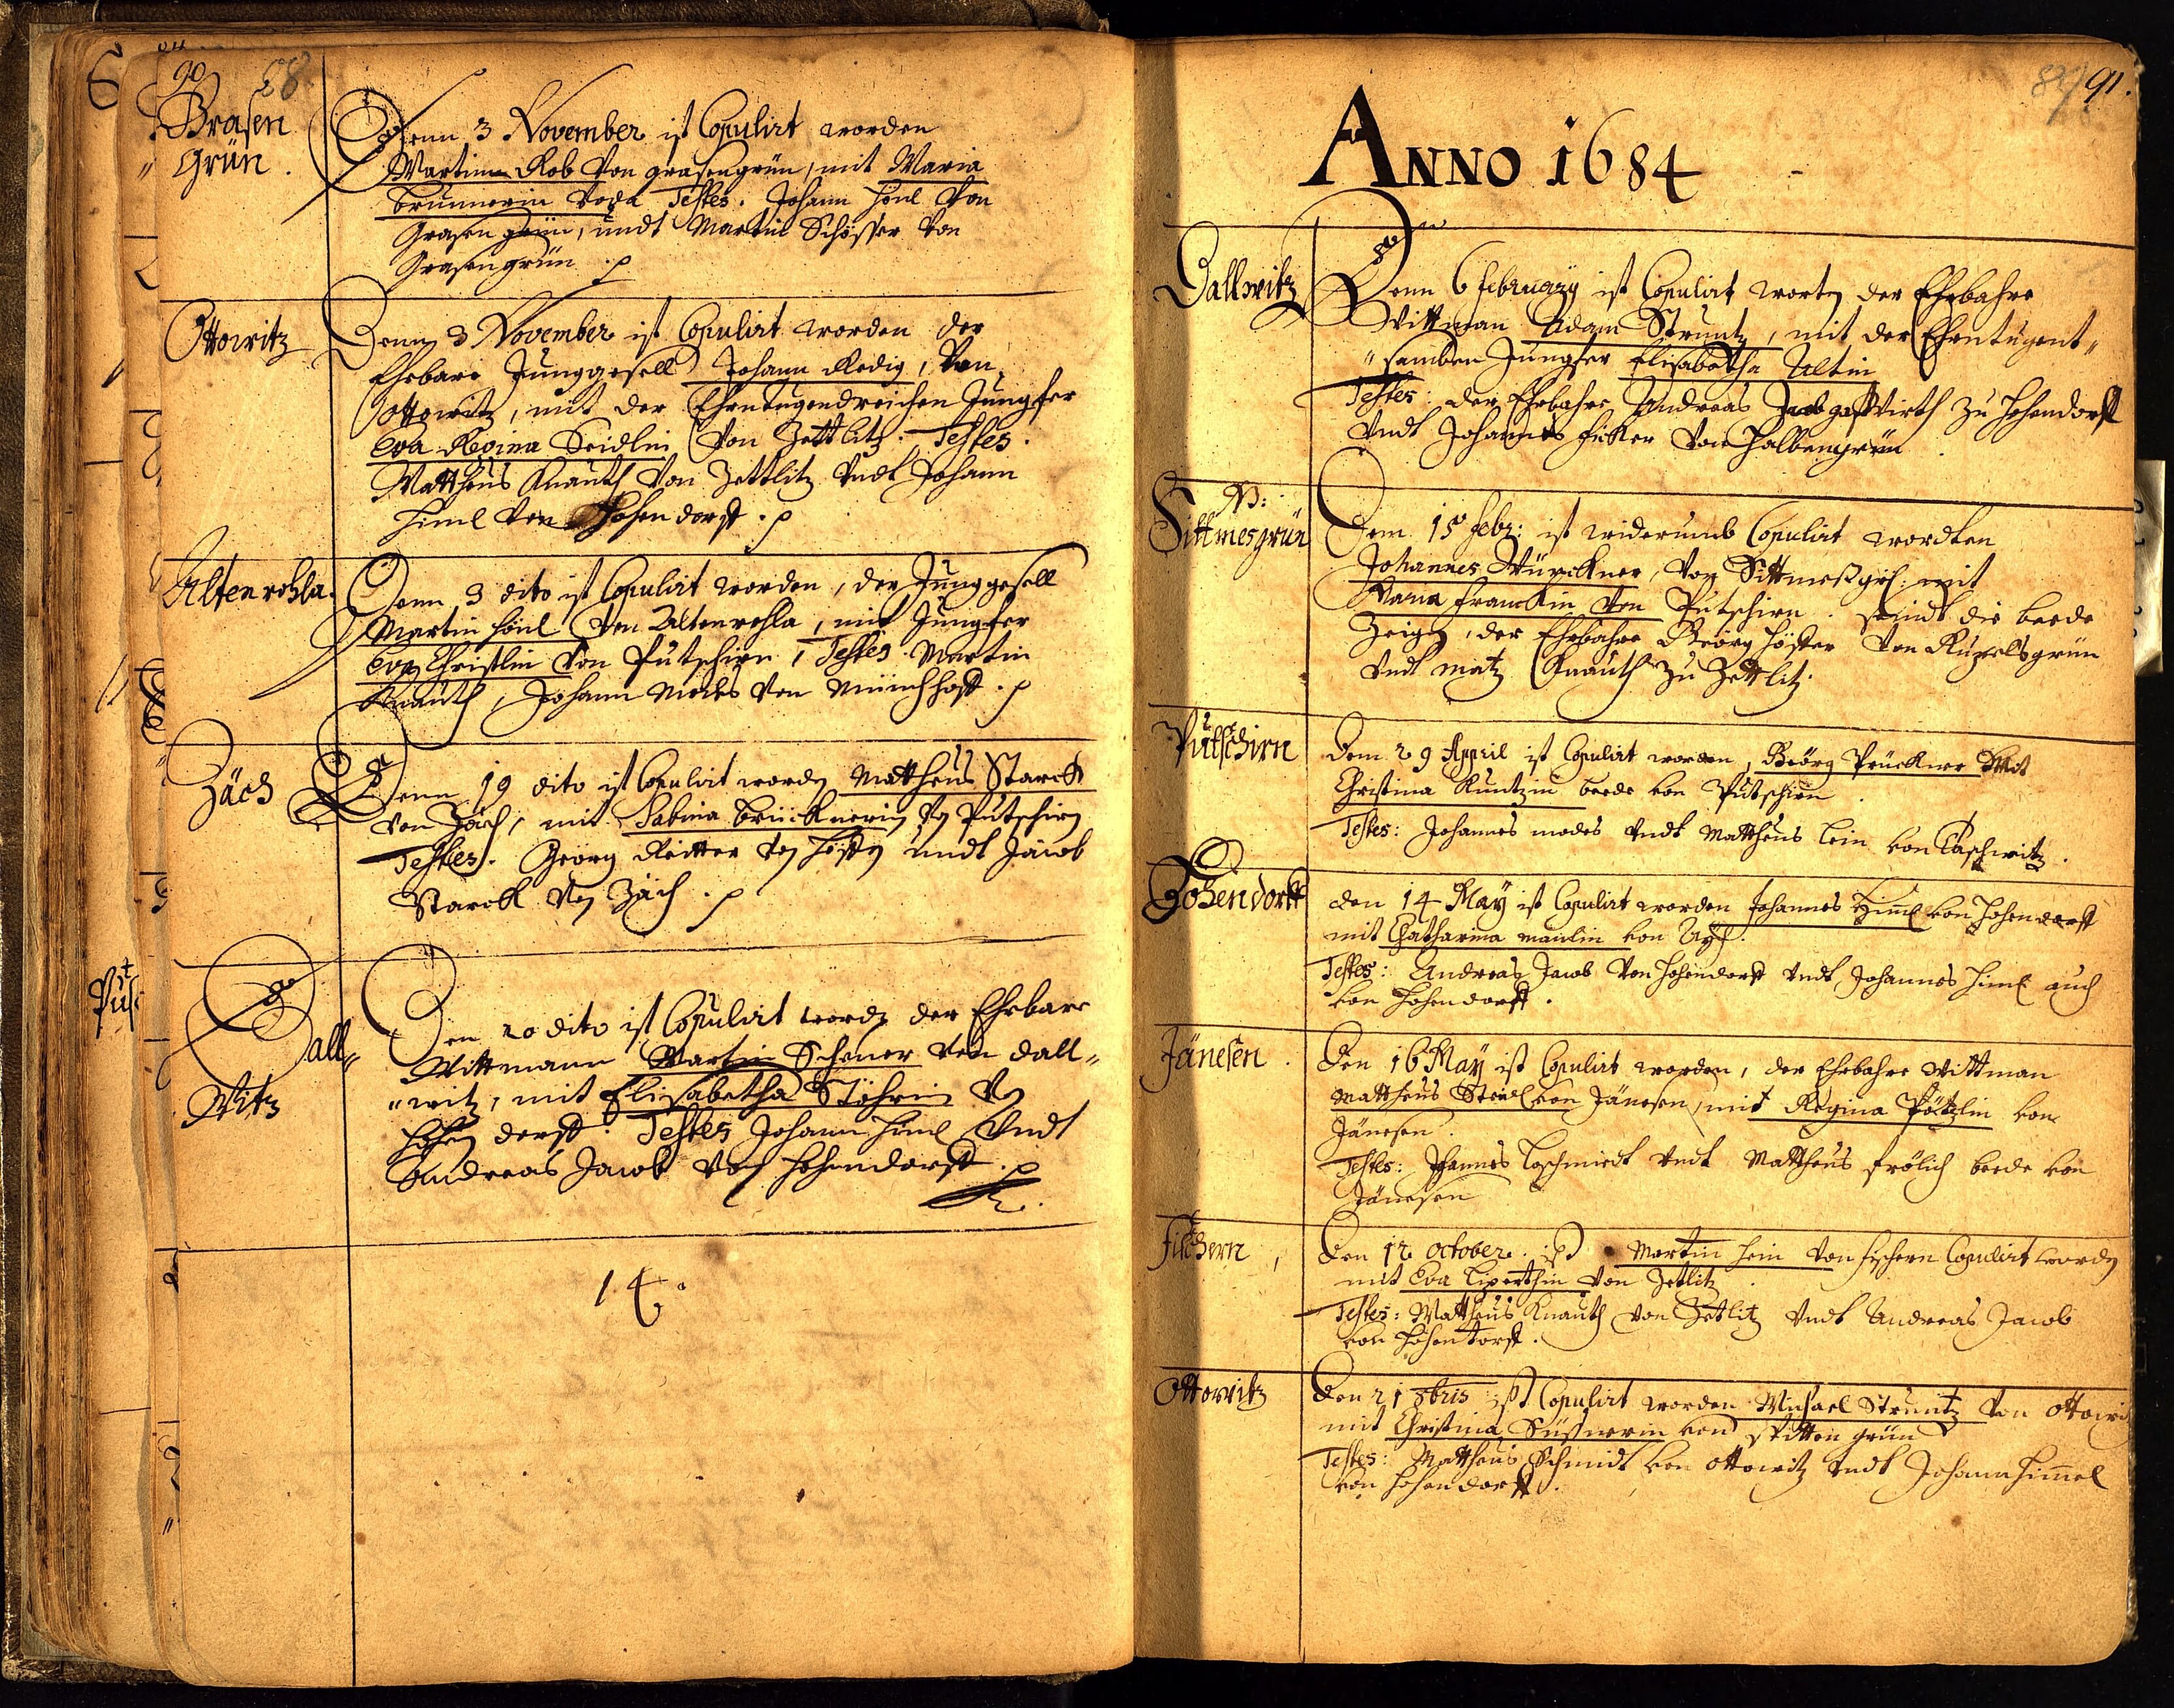 90
58
Grasen
"Grün.
Denn 3 November ist Copulirt worden
Martinn Rob Von grasengrün, mit Maria
Brunnerin Testes. Johann Himl Von
Grasen grün, undt Martin Schösser Von
Grasengrün
Ottowitz
Denn 3 November ist Copulirt worden der
Ehebare Junggesell Johann Redig, Von
ottowitz, mit der Ehrntugendreichen Jungfer
Eva Regina Seidlin Von Zettlitz. Testes.
Mattheus Knauth Von Zettlitz Vndt Johann
Himl Von Hohendorff.
Altenrohla.
Denn 3 dito ist Copulirt worden, der Junggesell
Martin Hönl Von Altenrohla, mit Jungfer
Eva Christlin Von Putschirn, Testes. Martin
Knauth, Johann Modes Von Münchhoff.
Zäch
Denn 19 dito ist Copulirt worden Mattheus Starck
von Zäch, mit Sabina Brücknerin Von Putschirn
Testes. Georg Reitter undt Jacob
Starck Von Zäch.
Put
Dall"
Witz
Den 20 dito ist Copulirt worden der Ehebare
Wittmann Martin Schener Von dall"
"witz, mit Elisabetha Stöhrin Von
Hohendorff. Testes Johann Himl Vndt
Andreas Jacob Von Hohendorff.
14.
91.
ANNO 1684
Dallwitz
Denn 6 february ist Copulirt worden der Ehrbahre
Wittman Adam Struntz, mit der Ehrntugent"
"samben Jungfer Elisabetha Ultin
Testes: der Ehrbahre Andreas Jacob gastwirth zu Hohendorff
Vndt Johannes ficker Von Halbengrün
N:
Sittmesgrün
Denn 15 febr: ist widerumb Copulirt wordten
Johannes Würckner, Von Sittmeßgrü: mit
Maria Franckin Von Putschirn. seindt die beede
Zeigen, der Ehrbahre Georg Höffer Von Ruppelsgrün
Vndt matz Knauth zu Zettlitz.
Putschirn
Den 29 April ist Copulirt worden, Georg Prückner Mit
Christina Kuntzin beede von Putschirn.
Testes: Johannes modes Vndt Mattheus Lein von Taschwitz.
Hohendorff
den 14 May ist Copulirt worden Johannes Himl von Hohendorff
mit Catharina maulin von Aich.
Testes: Andreas Jacob Von Hohendorff Vndt Johannes Himl auch
von Hohendorff.
Jänesen.
Den 16 May ist Copulirt worden, der Ehrbahre wittman
Mattheus Steidl von Jänesen, mit Regina Pöttzlin von
Jänesen.
Testes: Johannes Loschmidt Vndt Mattheus frölich beede von
Jänesen
Fischern,
Den 12 October ist Martin Hein Von fischern Copulirt worden
mit Eva Lipperthin Von Zetlitz.
Testes: Mattheus Knauth von Zetlitz Vndt Andreas Jacob
von Hohentorff.
Ottowitz
Den 21 8bris ist Copulirt worden Michael Struntz Von ottowitz
mit Christina Süssnerin von spitten grün
Testes: Mattheus Schmidt von ottowitz Vndt Johann Himmel
von Hohendorff.